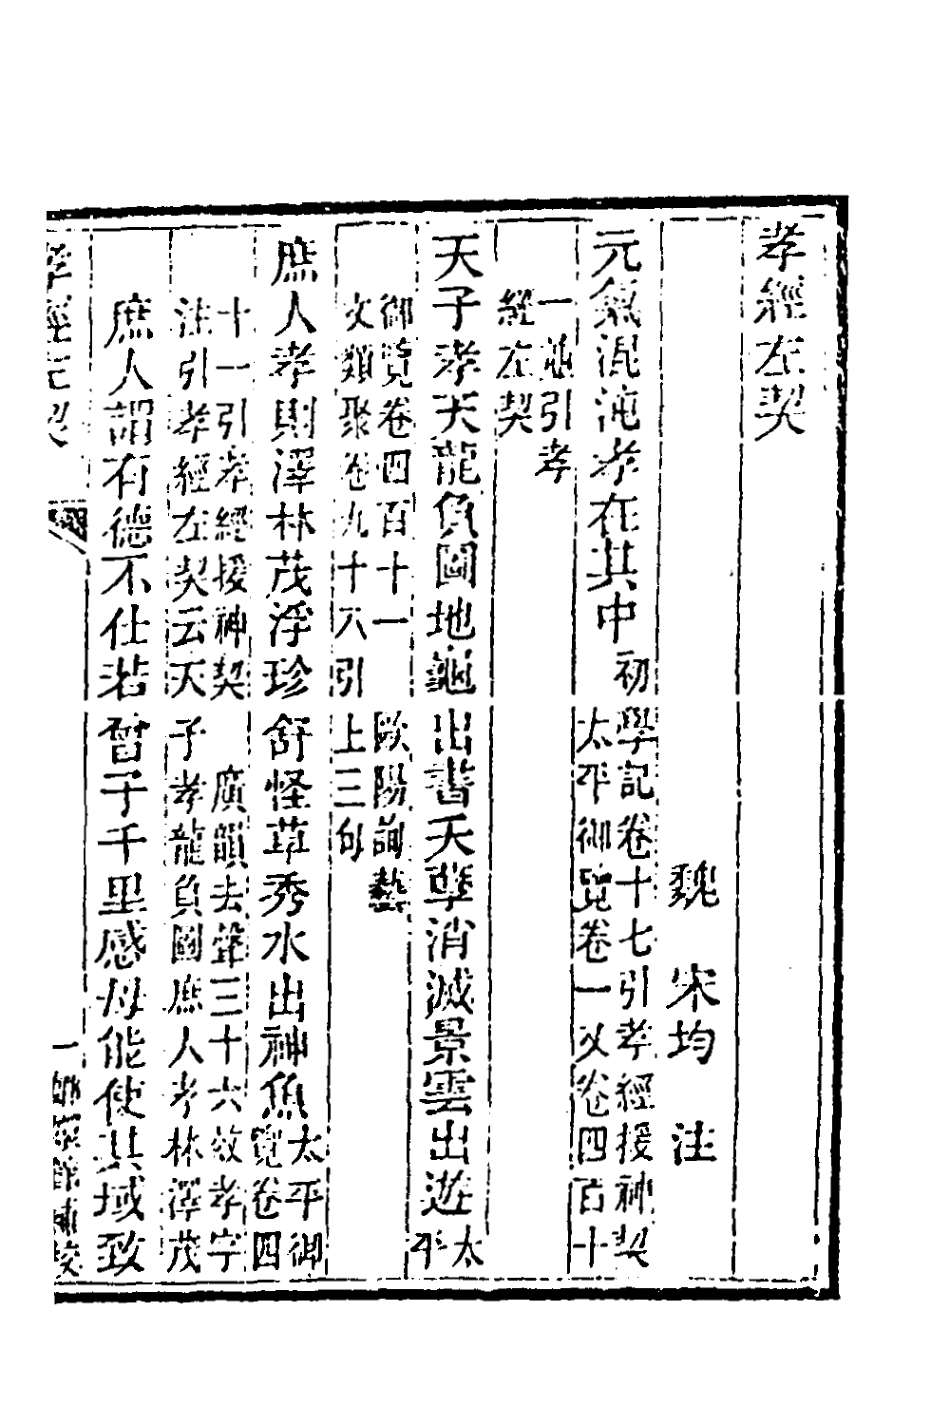 孝經左契
魏　宋均　注
元氣混沌孝在其中初學記卷十七引孝經援神契
太平御覽卷一又卷四百十
一並引孝
經左契
天子孝天龍負圖地龜出書天孽消滅景雲出遊太
平
御覽卷四百十一　歐陽詢藝
文類聚卷九十八引上三句
庶人孝則澤林茂浮珍舒怪草秀水出神魚太平御
覽卷四
十一引孝經援神契　廣韻去聲三十六效孝字
注引孝經左契云天子孝龍負圖庶人孝林澤茂
庶人謂有德不仕若曾子千里感母能使其域致
孝經左契　一　嫏嬛館補校